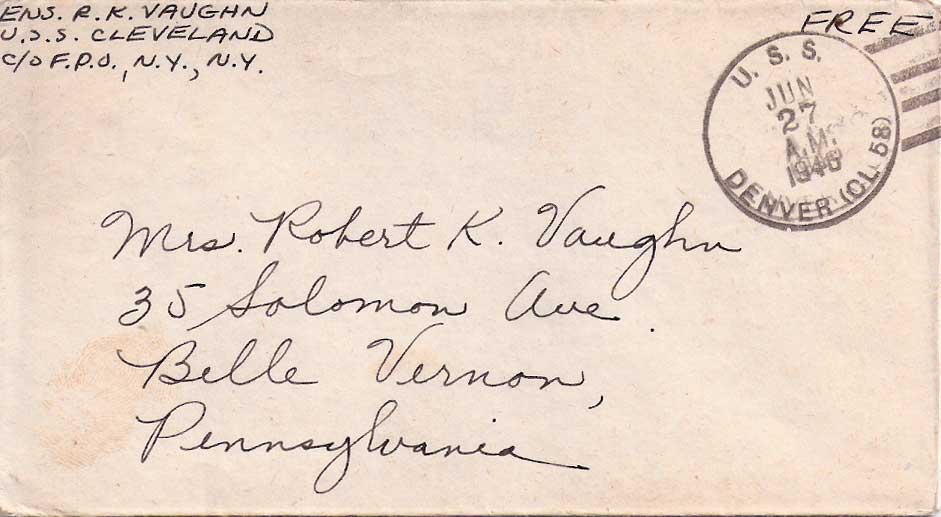 ENS. R.K. VAUGHN
U.S.S. CLEVELAND
C/O F.P.O., N.Y., N.Y.
FREE
U. S. S.
JUN
27
A.M.
1946
DENVER (CL 58)
Mrs. Robert K. Vaughn
35 Solomon Ave.
Belle Vernon,
Pennsylvania